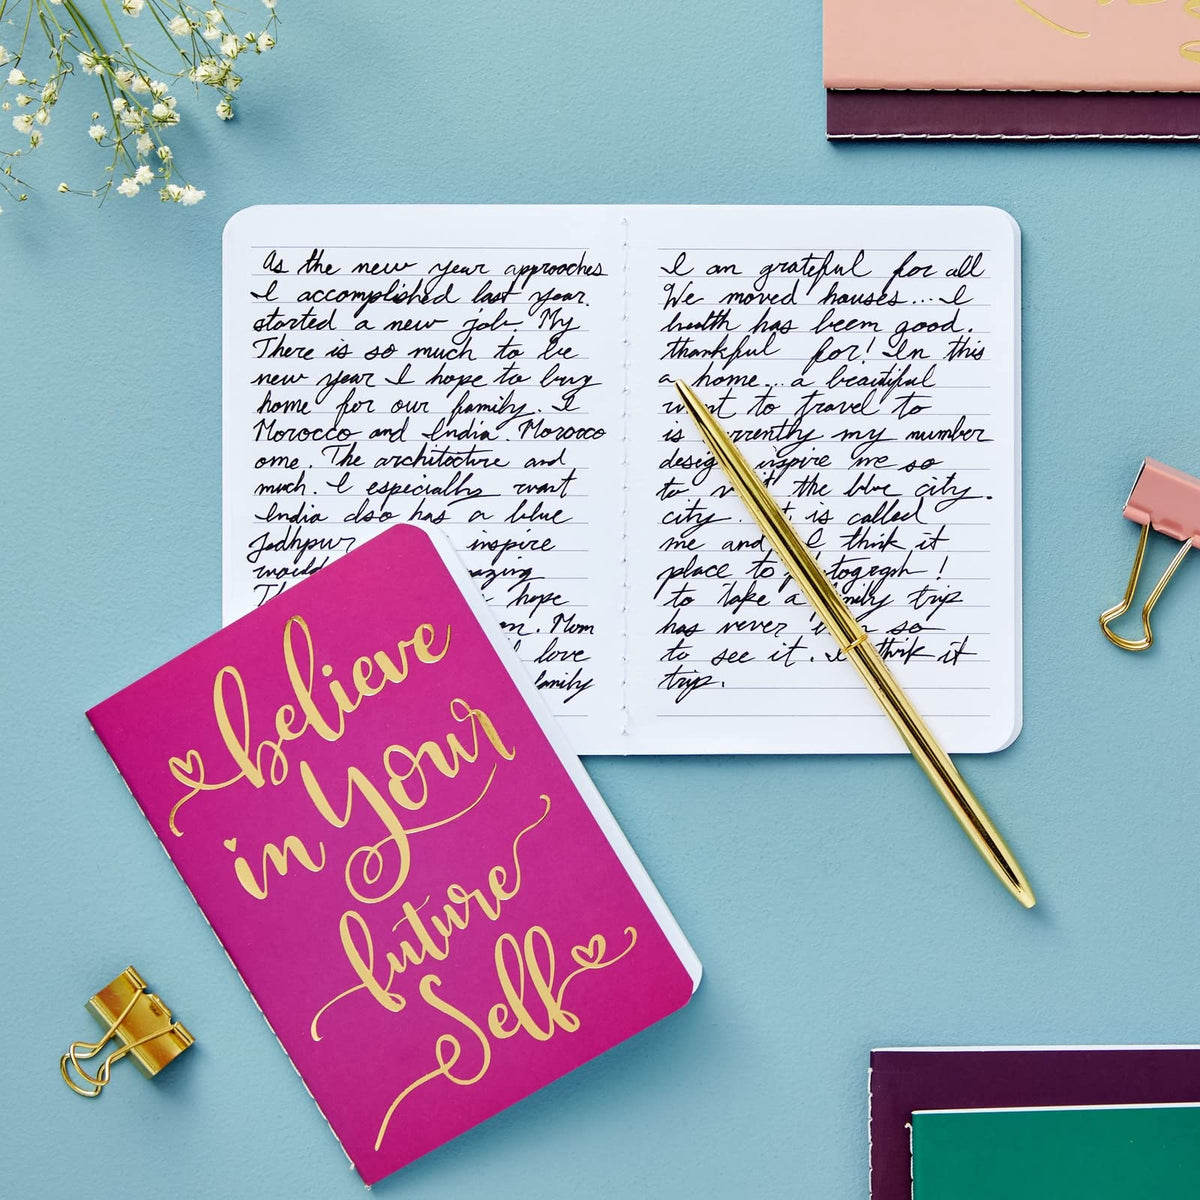 As the new year approaches
I accomplished last year.
started a new job. My
There is so much to be
new year I hope to buy
home for our family. I
Morocco and India. Morocco
ome. The architecture and
much. I especially want
India also has a blue
Jodhpur inspire
would
hope
Mom
love
family
I am grateful for all
We moved houses... I
health has been good.
thankful for! In this
a home... a beautiful
want to travel to
is currently my number
design inspire me so
to visit the blue city.
city. It is called
me and I think it
place to photograph!
to take a family trip
has never been so
to see it. I think it
trip.
believe
in Your
future
Self